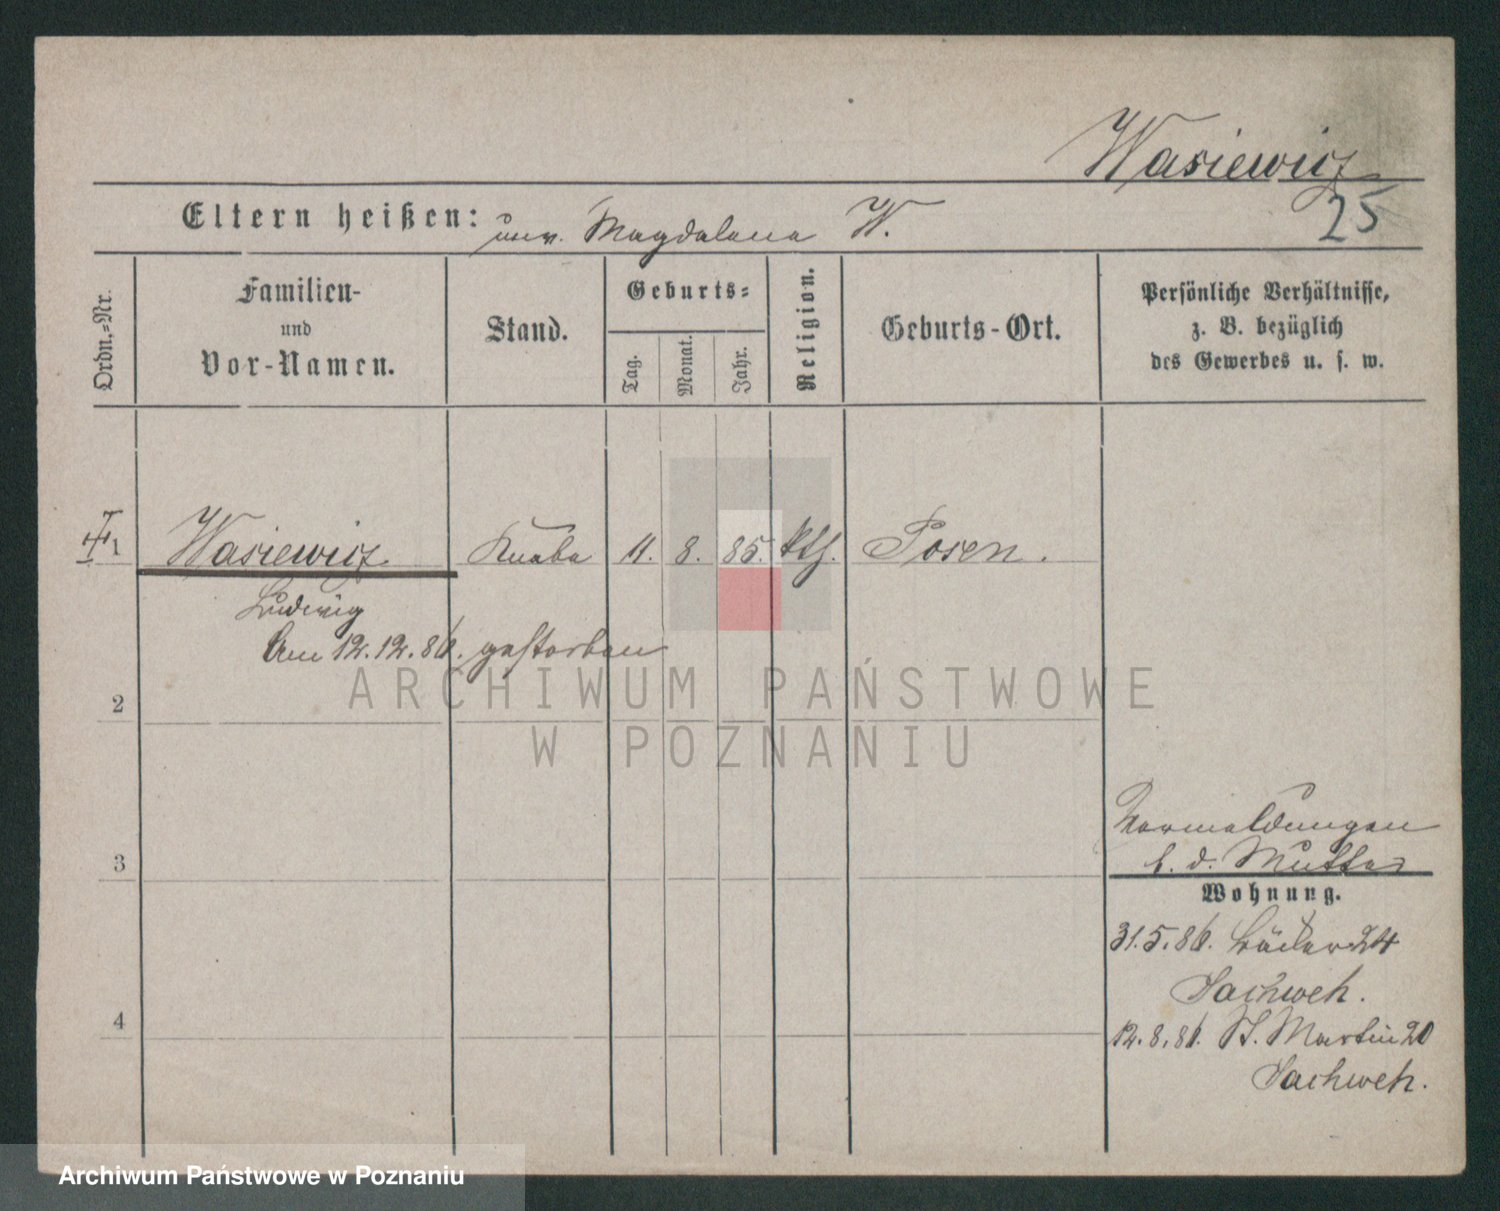 Wasiewicz
25
Eltern heißen: unv. Magdalena W.
Ordn.=Nr.
Familien-
und
Vor-Namen.
Stand.
Geburts=
Tag.
Monat.
Jahr.
Religion.
Geburts-Ort.
Persönliche Verhältnisse,
z. B. bezüglich
des Gewerbes u. s. w.
1 Wasiewicz Knabe 11. 8. 85. kth. Posen.
Ludwig
Am 12.12.86. gestorben
2
3
4
Vormeldungen
b. d. Mutter
Wohnung.
31.5.86. 24
Sachweh.
12.8.86. St. Martin 20
Sachweh.
ARCHIWUM PAŃSTWOWE
W POZNANIU
Archiwum Państwowe w Poznaniu